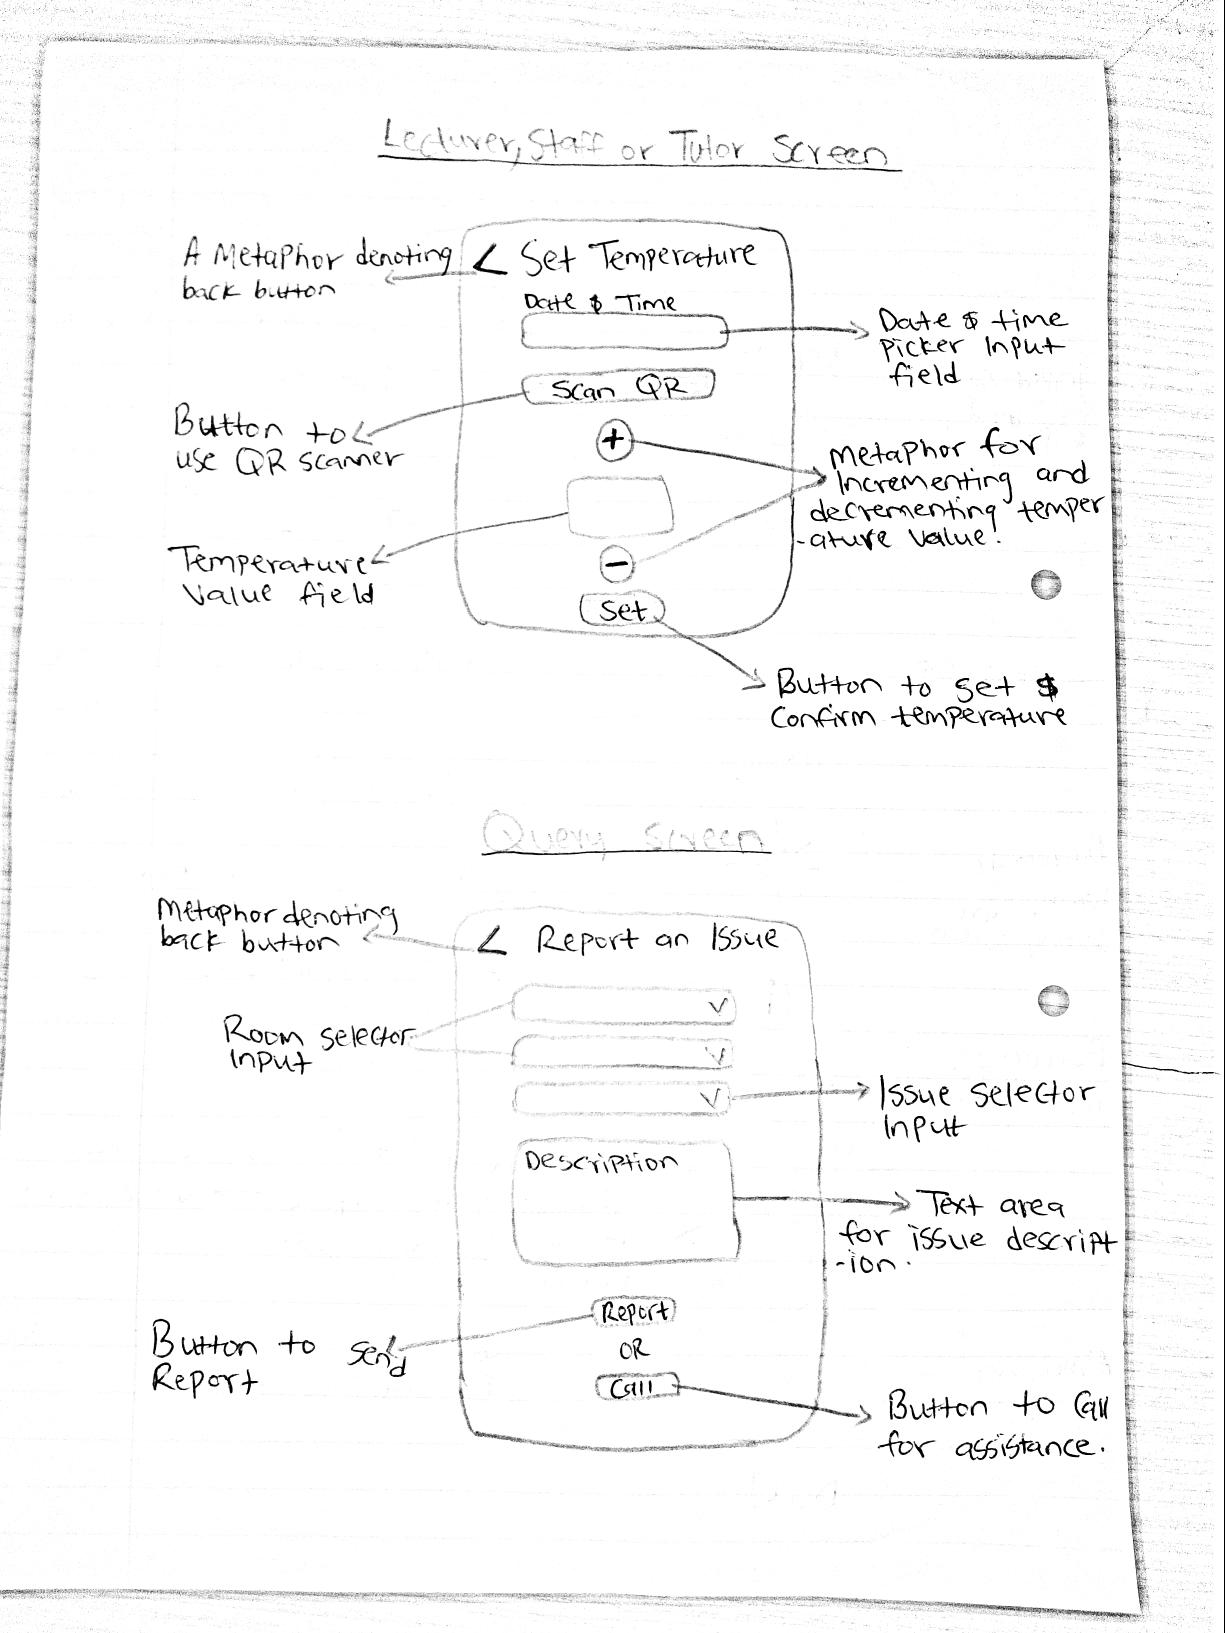 Lecturer, Staff or Tutor Screen
A Metaphor denoting
back button
< Set Temperature
Date & Time
Date & time
picker Input
field
Scan QR
Button to
use QR scanner
+
Metaphor for
Incrementing and
decrementing temper
-ature value!
Temperature
Value field
-
Set
Button to set &
Confirm temperature
Query Screen
Metaphor denoting
back button
< Report an Issue
Room selector
Input
Issue Selector
Input
Description
Text area
for issue descript
-ion.
Report
Button to send
Report
OR
Call
Button to Call
for assistance.